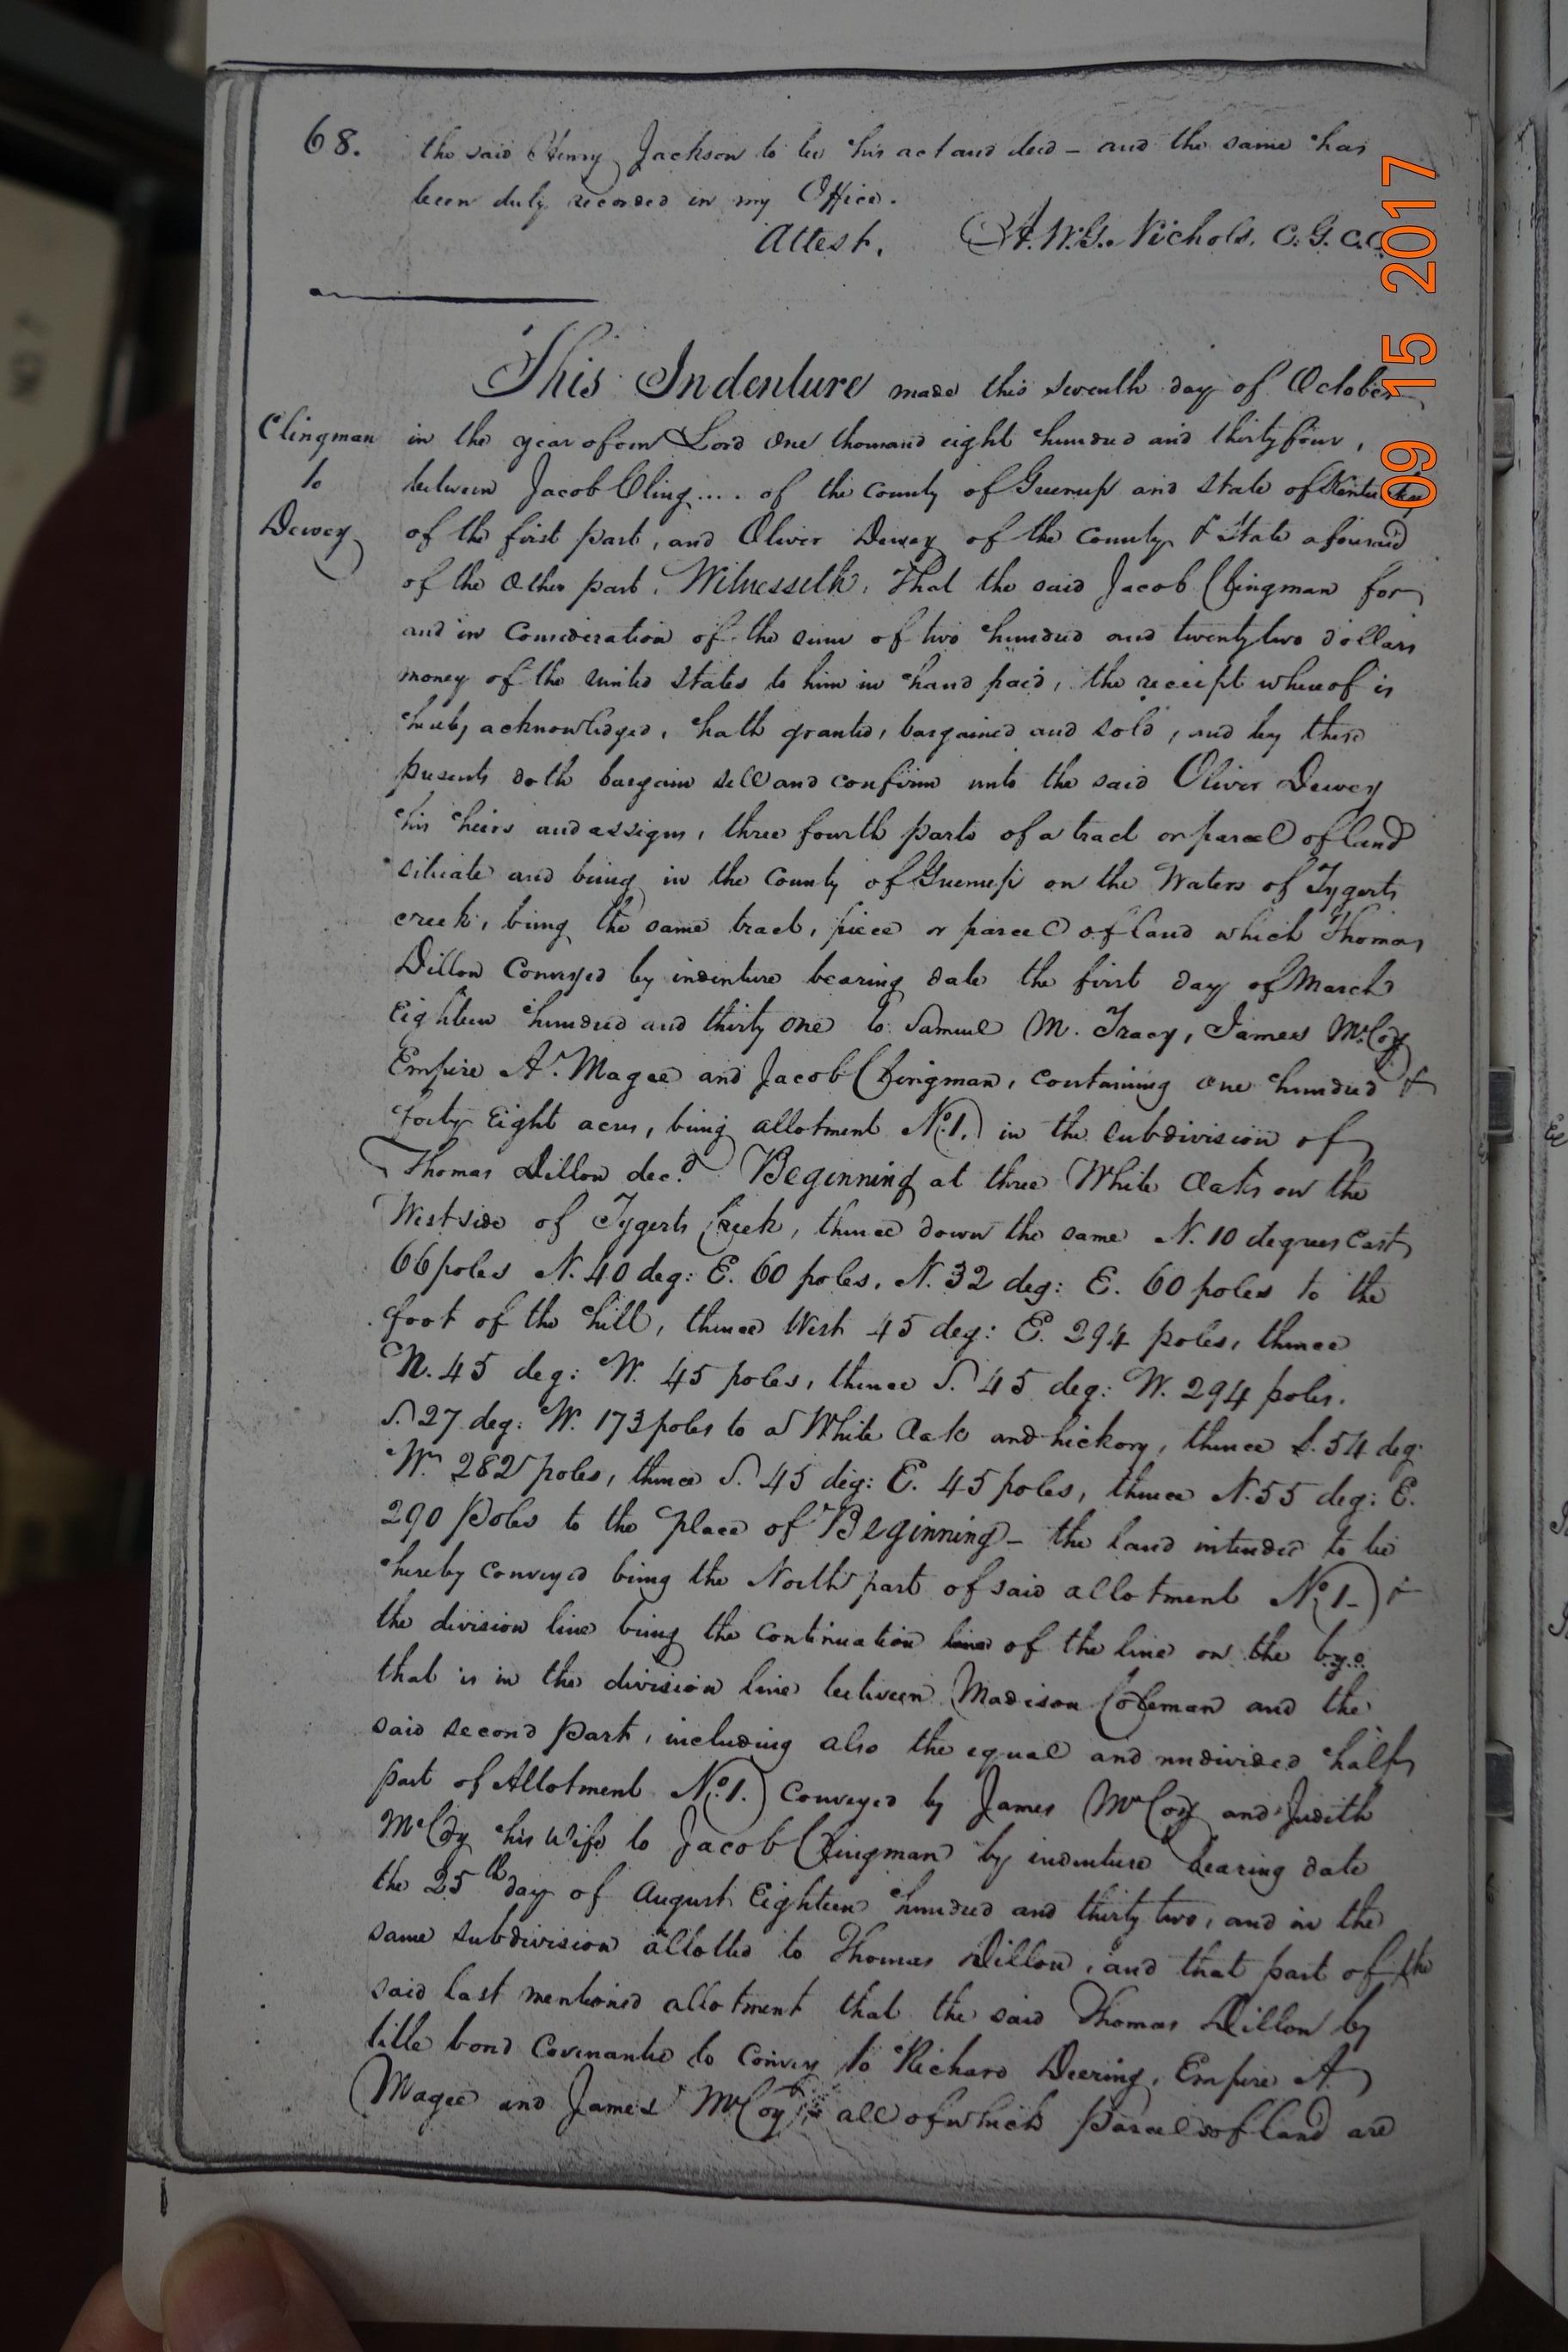 68. the said Henry Jackson to be his act and deed – and the same has
been duly recorded in my Office.
Attest. A. W. G. Nichols. C. G. C. C.
This Indenture made this seventh day of October
Clingman in the year of our Lord One thousand eight hundred and thirty four,
to between Jacob Cling.... of the County of Greenup and State of Kentucky
Dewey of the first part, and Oliver Dewey of the County & State aforesaid
of the Other part. Witnesseth, That the said Jacob Clingman for
and in Consideration of the sum of two hundred and twenty two dollars
money of the united States to him in hand paid, the receipt whereof is
hereby acknowledged, hath granted, bargained and sold, and by these
presents doth bargain sell and confirm unto the said Oliver Dewey
his heirs and assigns, three fourth parts of a tract or parcel of land
situate and being in the County of Greenup on the Waters of Tygerts
creek, being the same tract, piece or parcel of land which Thomas
Dillon Conveyed by indenture bearing date the first day of March
Eighteen hundred and thirty one to Samuel M. Tracy, James McCoy
Empire A. Magee and Jacob Clingman, containing One hundred &
forty Eight acres, being allotment No. 1. in the subdivision of
Thomas Dillon decd. Beginning at three White Oaks on the
West side of Tygerts Creek, thence down the same N. 10 degrees East
66 poles N. 40 deg: E. 60 poles, N. 32 deg: E. 60 poles to the
foot of the hill, thence West 45 deg: E. 294 poles, thence
N. 45 deg: W. 45 poles, thence S. 45 deg: W. 294 poles.
S. 27 deg: W. 173 poles to a White Oak and hickory, thence S. 54 deg:
W. 282 poles, thence S. 45 deg: E. 45 poles, thence N. 55 deg: E.
290 Poles to the place of Beginning – the land intended to be
hereby conveyed being the North part of said allotment No. 1 –
the division line being the Continuation line of the line on the bye
that is in the division line between Madison Coleman and the
said second part, including also the equal and undivided half
part of Allotment No. 1. Conveyed by James McCoy and Judith
McCoy his Wife to Jacob Clingman by indenture bearing date
the 25th day of August Eighteen hundred and thirty two, and in the
same subdivision allotted to Thomas Dillon, and that part of the
said last mentioned allotment that the said Thomas Dillon by
title bond Covenanted to Convey to Richard Deering, Empire A.
Magee and James McCoy, all of which parcels of land are
09 15 2017